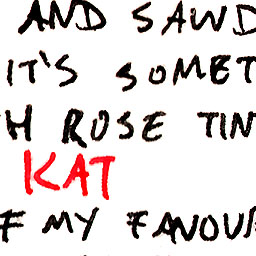 AND SAWD
IT'S SOMET
H ROSE TIN
KAT
F MY FAVOUR